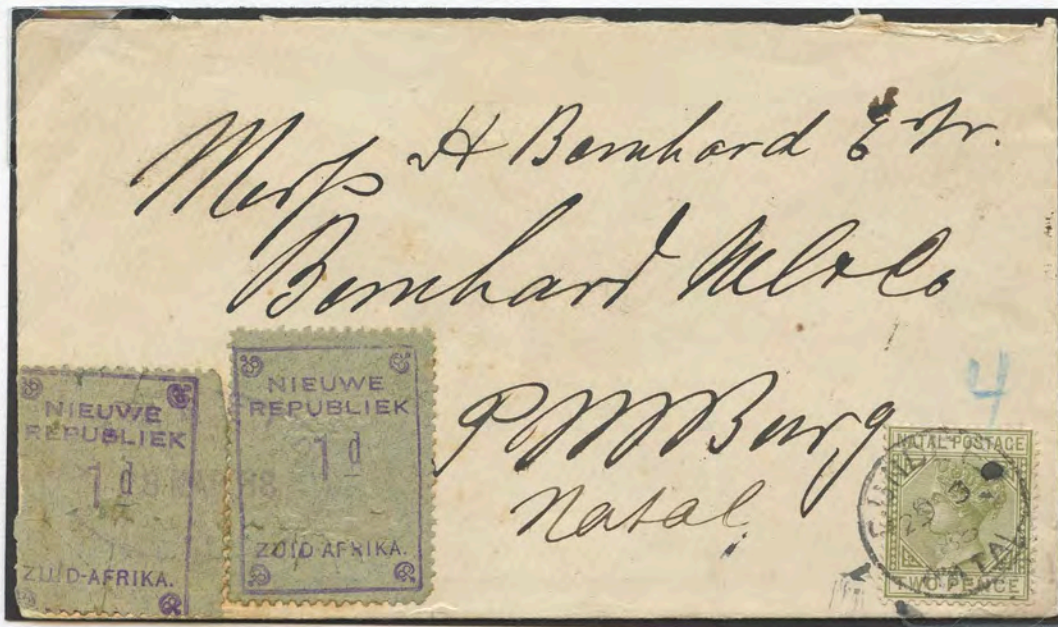 Messrs H Bernhard & Fr.
Bernhard
PMBurg
Natal
4
NIEUWE
REPUBLIEK
1d
ZUID-AFRIKA.
NIEUWE
REPUBLIEK
1d
ZUID-AFRIKA.
NATAL POSTAGE
TWO PENCE
NATAL